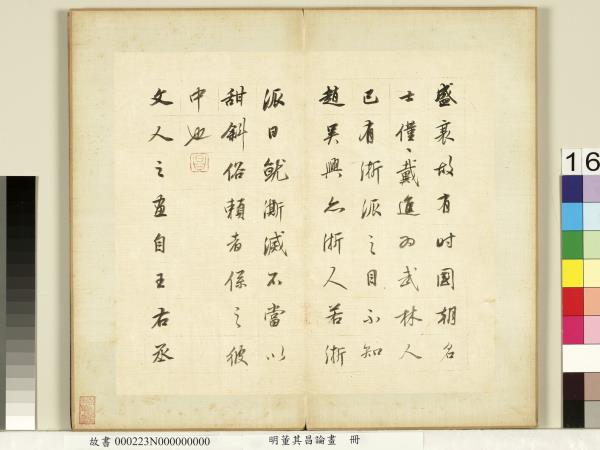 盛衰故有時國朝名
士僅〻戴進為武林人
已有浙派之目不知
趙吳興亦浙人若浙
派日就澌滅不當以
甜斜俗賴者係之彼
中也
文人之畫自王右丞
故書 000223N000000000 明董其昌論畫 冊
16